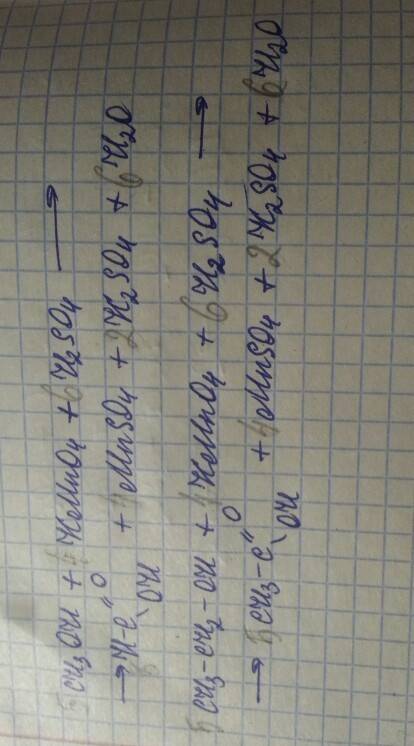 5CH₃OH + 4KMnO₄ + 6H₂SO₄ →
→ 5H-C=O\OH + 4MnSO₄ + 2K₂SO₄ + 6H₂O
5CH₃-CH₂-OH + 4KMnO₄ + 6H₂SO₄ →
→ 5CH₃-C=O\OH + 4MnSO₄ + 2K₂SO₄ + 6H₂O